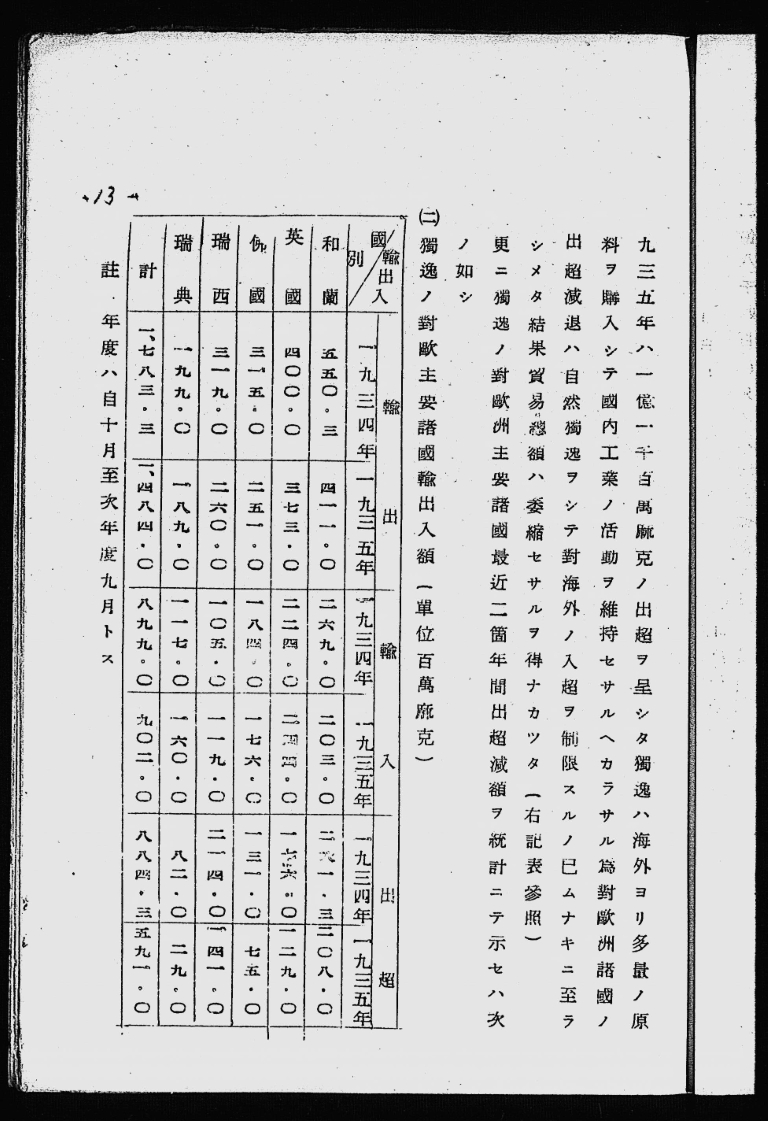 九三五年ハ一億一千百萬麻克ノ出超ヲ呈シタ獨逸ハ海外ヨリ多量ノ原
料ヲ購入シテ國内工業ノ活動ヲ維持セサルヘカラサル為對歐洲諸國ノ
出超減退ハ自然獨逸ヲシテ對海外ノ入超ヲ制限スルノ已ムナキニ至ラ
シメタ結果貿易總額ハ委縮セサルヲ得ナカツタ(右記表參照)
更ニ獨逸ノ對歐洲主要諸國最近二箇年間出超減額ヲ統計ニテ示セハ次
ノ如シ
㈡獨逸ノ對歐主要諸國輸出入額(單位百萬麻克)
輸出入 國別 輸出 輸入 出超
一九三四年 一九三五年 一九三四年 一九三五年 一九三四年 一九三五年
和蘭 五五〇・三 四一一・〇 二六九・〇 二〇三・〇 二八一・三 二〇八・〇
英國 四〇〇・〇 三七三・〇 二二四・〇 二四四・〇 一七六・〇 一二九・〇
佛國 三一五・〇 二五一・〇 一八四・〇 一七六・〇 一三一・〇 七五・〇
瑞西 三一九・〇 二六〇・〇 一〇五・〇 一一九・〇 二一四・〇 一四一・〇
瑞典 一九九・〇 一八九・〇 一一七・〇 一六〇・〇 八二・〇 二九・〇
計 一、七八三・三 一、四八四・〇 八九九・〇 九〇二・〇 八八四・三 五九一・〇
註・年度ハ自十月至次年度九月トス
-13-